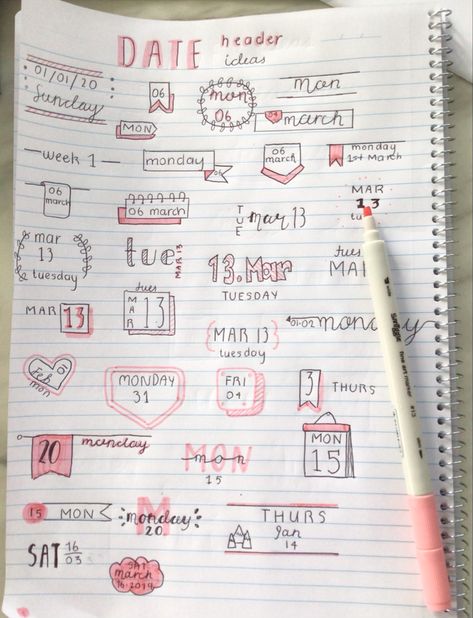 DATE header
ideas
01/01/20
Sunday
06
MON
mon
06
mon
march
week 1
monday
06
06
march
monday
1st March
06
march
06 march
TUE
mar 13
MAR
13
tu
mar
13
tuesday
tue
MAR 13
13. Mar
TUESDAY
tues
MA
MAR 13
tues
MAR
13
MAR 13
tuesday
01-02 monday
Feb
01
mon
MONDAY
31
FRI
04
3 THURS
20 monday
mon
MON
15
MON
15
15 MON
M
monday
20
THURS
Jan
14
SAT 16
03
SAT
march
16 2019